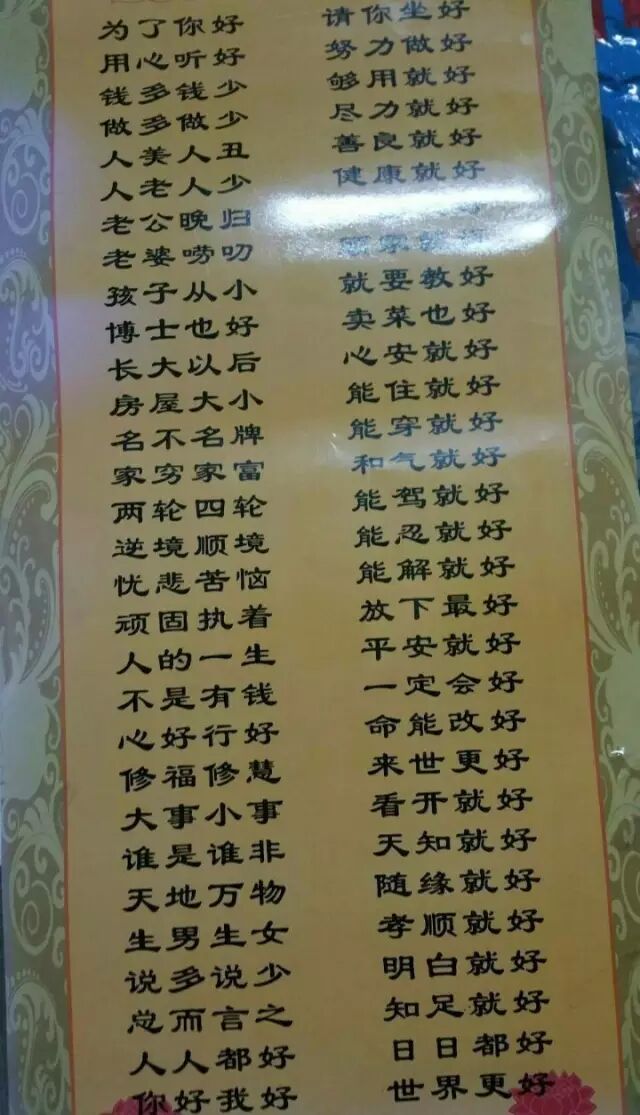 为了你好 请你坐好
用心听好 努力做好
钱多钱少 够用就好
做多做少 尽力就好
人美人丑 善良就好
人老人少 健康就好
老公晚归
老婆唠叨 家就好
孩子从小 就要教好
博士也好 卖菜也好
长大以后 心安就好
房屋大小 能住就好
名不名牌 能穿就好
家穷家富 和气就好
两轮四轮 能驾就好
逆境顺境 能忍就好
忧悲苦恼 能解就好
顽固执着 放下最好
人的一生 平安就好
不是有钱 一定会好
心好行好 命能改好
修福修慧 来世更好
大事小事 看开就好
谁是谁非 天知就好
天地万物 随缘就好
生男生女 孝顺就好
说多说少 明白就好
总而言之 知足就好
人人都好 日日都好
你好我好 世界更好